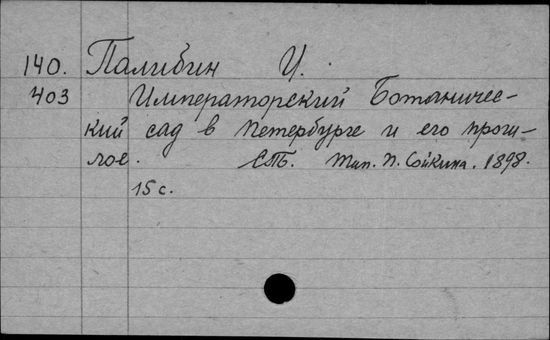 140. Палибин И.
403 Императорский Ботаничес-
кий сад в Петербурге и его прош-
лое. СПб. Тип. П. Сойкина. 1898.
15 с.